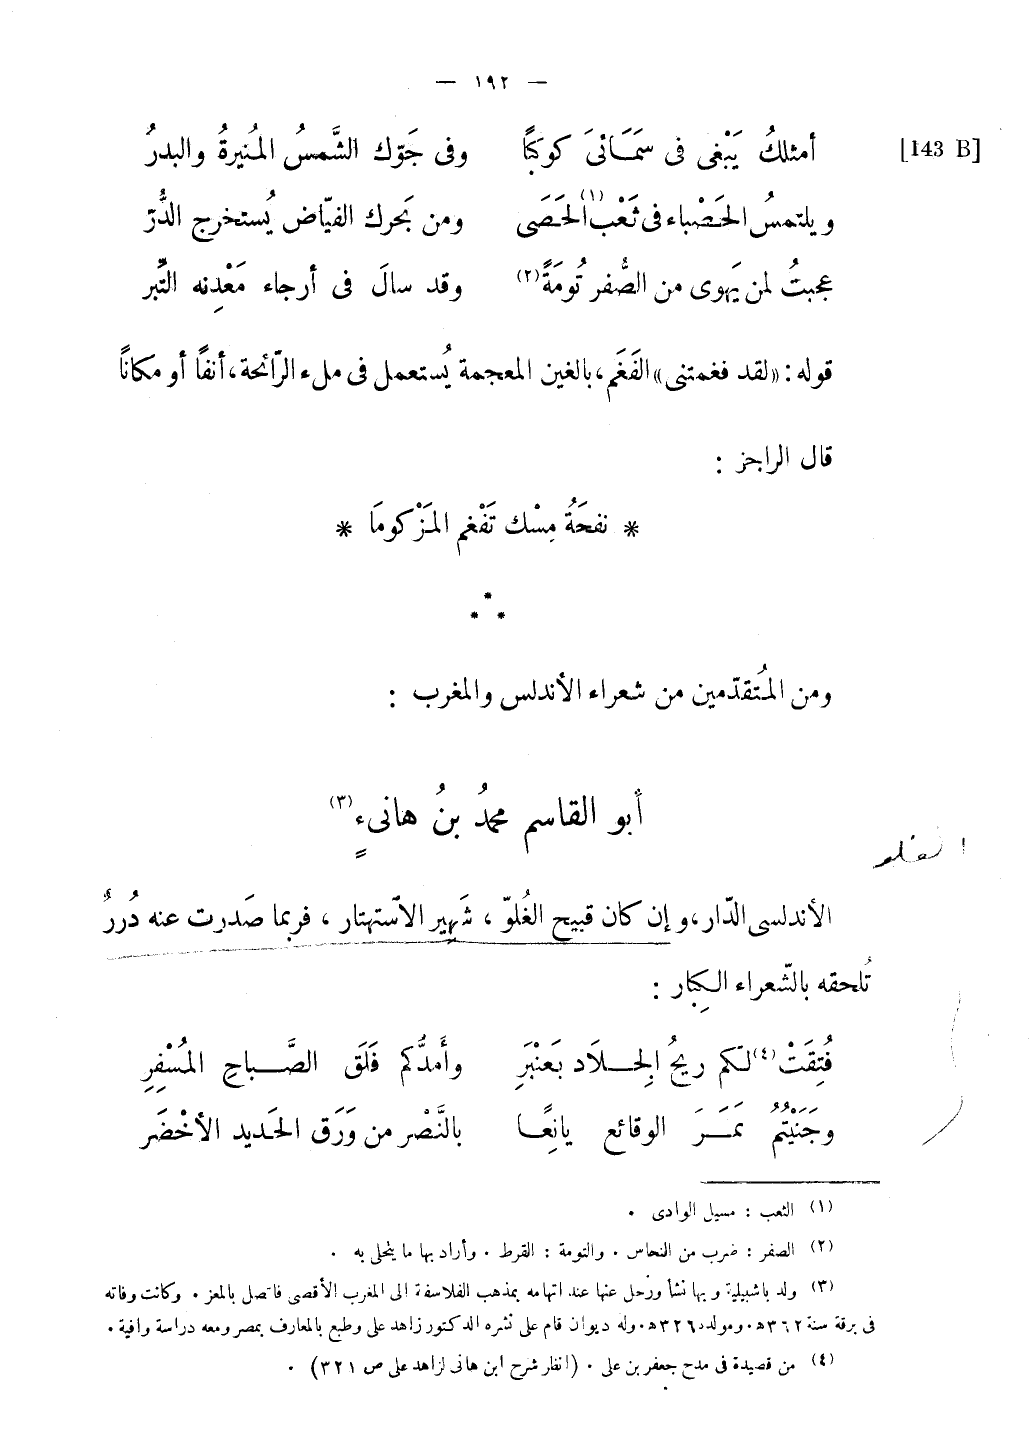 — ١٩٢ —
[143 B]
أمثلكُ يَبْغى فى سَمَائىَ كوكبًا وفى جَوّك الشَّمسُ المُنيرةُ والبدرُ
ويلتمسُ الحَصْباء فى ثَعْب(١) الحَصَى ومن بَحرك الفيّاض يُستخرج الدُّرّ
عجبتُ لمن يَهوى من الصُّفر تُومَةً(٢) وقد سالَ فى أرجاء مَعْدِنه التِّبر
قوله: «لقد فغمتنى» الفَغَم، بالغين المعجمة يُستعمل فى ملء الرّائحة، أنفًا أو مكانًا
قال الراجز :
* نفحَةُ مِسْك تَفْغم المَزْكومَا *
* * *
ومن المُتقدّمين من شعراء الأندلس والمغرب :
أبو القاسم محمدُ بنُ هانىءٍ(٣)
الغلو
الأندلسى الدّار، وإن كان قبيح الغُلوّ ، شَهِير الاسْتهتار ، فربما صَدرت عنه دُررٌ
تُلحقه بالشّعراء الكِبار :
فُتِقَتْ(٤) لكم ريحُ الجِلاَد بعَنْبَرِ وأَمدُّكم فَلَق الصَّباحِ المُسْفِرِ
وجَنَيْتُمُ ثَمَرَ الوقائع يانِعًا بالنَّصْر من وَرَق الحَديد الأخْضَر
(١) الثعب : مسيل الوادى .
(٢) الصفر : ضرب من النحاس . والتومة : القرط . وأراد بها ما يتحلى به .
(٣) ولد باشبيلية وبها نشأ ورحل عنها عند اتهامه بمذهب الفلاسفة الى المغرب الأقصى فاتصل بالمعز . وكانت وفاته
فى برقة سنة ٣٦٢هـ. ومولده ٣٢٦هـ. وله ديوان قام على نشره الدكتور زاهد على وطبع بالمعارف بمصر ومعه دراسة وافية .
(٤) من قصيدة فى مدح جعفر بن على . (انظر شرح ابن هانى لزاهد على ص ٣٢١) .